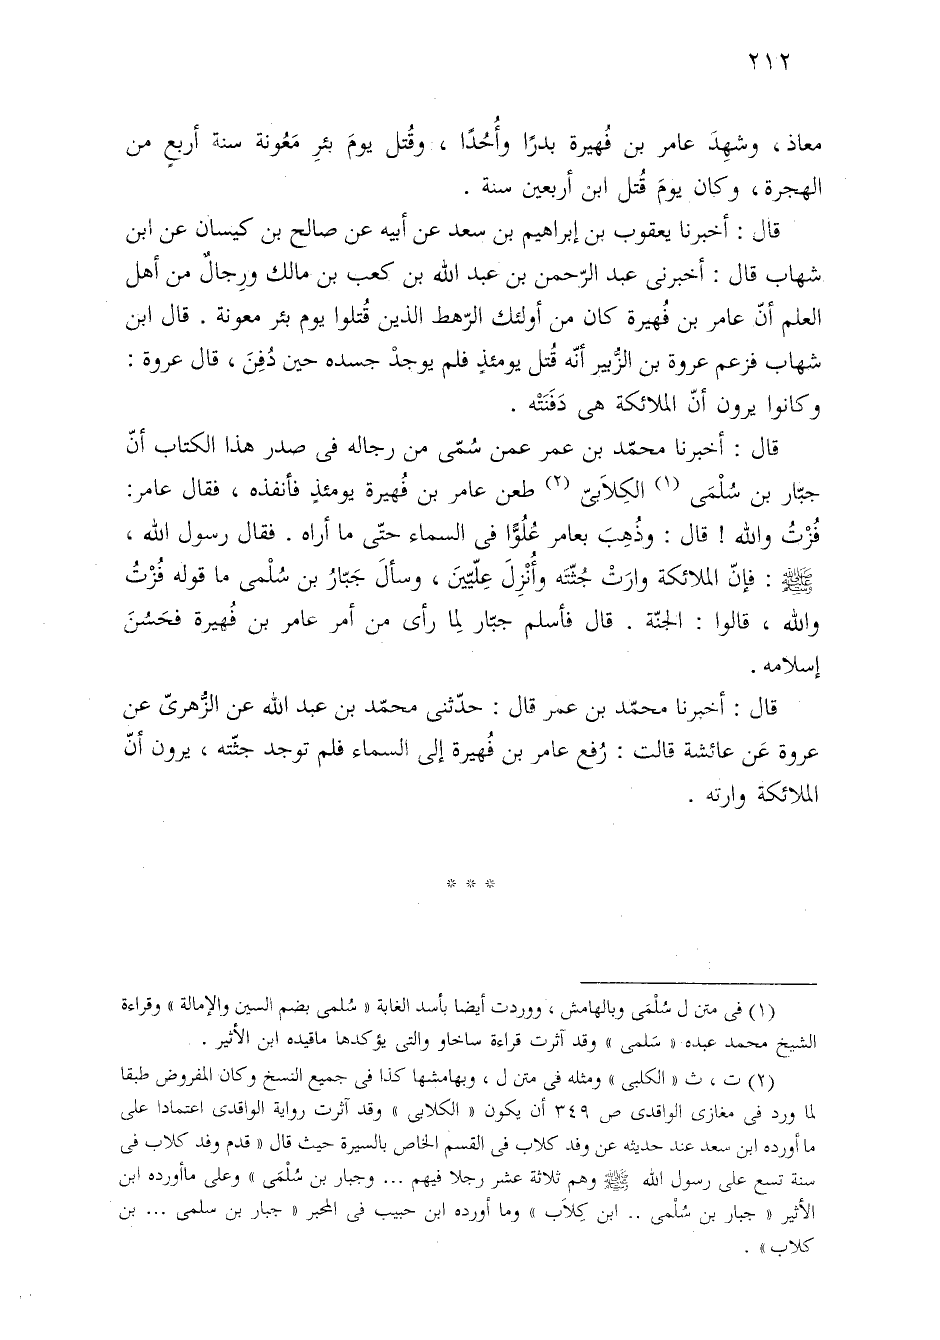 ٢١٢
معاذ ، وشهِدَ عامر بن فُهيرة بدرًا وأُحُدًا ، وقُتل يومَ بئرِ مَعُونة سنة أربعٍ من
الهجرة ، وكان يومَ قُتل ابن أربعين سنة .
قال : أخبرنا يعقوب بن إبراهيم بن سعد عن أبيه عن صالح بن كيسان عن ابن
شهاب قال : أخبرنى عبد الرّحمن بن عبد الله بن كعب بن مالك ورِجالٌ من أهل
العلم أنّ عامر بن فُهيرة كان من أولئك الرّهط الذين قُتلوا يوم بئر معونة . قال ابن
شهاب فزعم عروة بن الزُّبير أنّه قُتل يومئذٍ فلم يوجدْ جسده حين دُفِنَ ، قال عروة :
وكانوا يرون أنّ الملائكة هى دَفَنَتْه .
قال : أخبرنا محمّد بن عمر عمن سُمّى من رجاله فى صدر هذا الكتاب أنّ
جبّار بن سُلْمَى (١) الكِلاَبيّ (٢) طعن عامر بن فُهيرة يومئذٍ فأنفذه ، فقال عامر:
فُزْتُ والله ! قال : وذُهِبَ بعامر عُلُوًّا فى السماء حتّى ما أراه . فقال رسول الله ،
ﷺ : فإنّ الملائكة وارَتْ جُثّتَه وأُنْزِلَ عِلّيّينَ ، وسألَ جَبّارُ بن سُلْمى ما قوله فُزْتُ
والله ، قالوا : الجنّة . قال فأسلم جبّار لِما رأى من أمر عامر بن فُهيرة فحَسُنَ
إسلامه .
قال : أخبرنا محمّد بن عمر قال : حدّثنى محمّد بن عبد الله عن الزُّهرىّ عن
عروة عَن عائشة قالت : رُفع عامر بن فُهيرة إلى السماء فلم توجد جثّته ، يرون أنّ
الملائكة وارته .
* * *
(١) فى متن ل سُلْمَى وبالهامش ، ووردت أيضا بأسد الغابة « سُلمى بضم السين والإمالة » وقراءة
الشيخ محمد عبده « سَلمى » وقد آثرت قراءة ساخاو والتى يؤكدها ماقيده ابن الأثير .
(٢) ت ، ث « الكلبى » ومثله فى متن ل ، وبهامشها كذا فى جميع النسخ وكان المفروض طبقا
لما ورد فى مغازى الواقدى ص ٣٤٩ أن يكون « الكلابى » وقد آثرت رواية الواقدى اعتمادا على
ما أورده ابن سعد عند حديثه عن وفد كلاب فى القسم الخاص بالسيرة حيث قال « قدم وفد كلاب فى
سنة تسع على رسول الله ﷺ وهم ثلاثة عشر رجلا فيهم ... وجبار بن سُلْمَى » وعلى ماأورده ابن
الأثير « جبار بن سُلْمى .. ابن كِلاَب » وما أورده ابن حبيب فى المحبر « جبار بن سلمى ... بن
كلاب » .